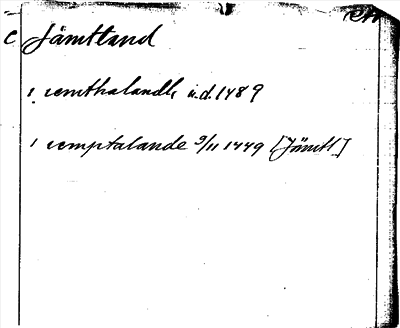 C Jämtland
i Jemthalandh u.d. 1489
i Jemptalande 9/11 1449 [Jämtl]